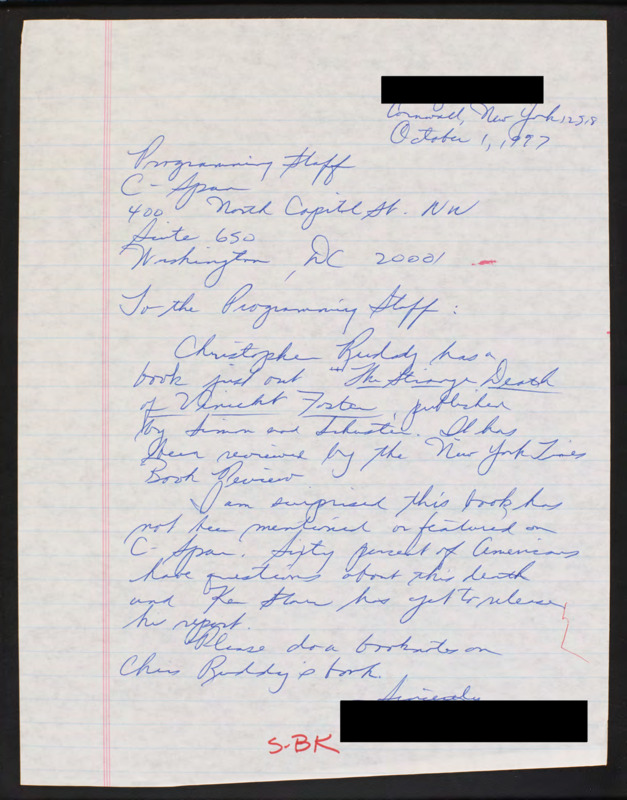 Cornwall, New York 12518
October 1, 1997
Programming Staff
C-Span
400 North Capitl St. NW
Suite 650
Washington, DC 20001
To the Programming Staff:
Christopher Ruddy has a
book just out "The Strange Death
of Vincent Foster, published
by Simon and Schuster. It has
been reviewed by the New York Times
Book Review
I am surprised this book has
not been mentioned or featured on
C-Span. Sixty percent of Americans
have questions about this death
and Ken Starr has yet to release
his report.
Please do a booknotes on
Chris Ruddy's book.
Sincerely
S-BK